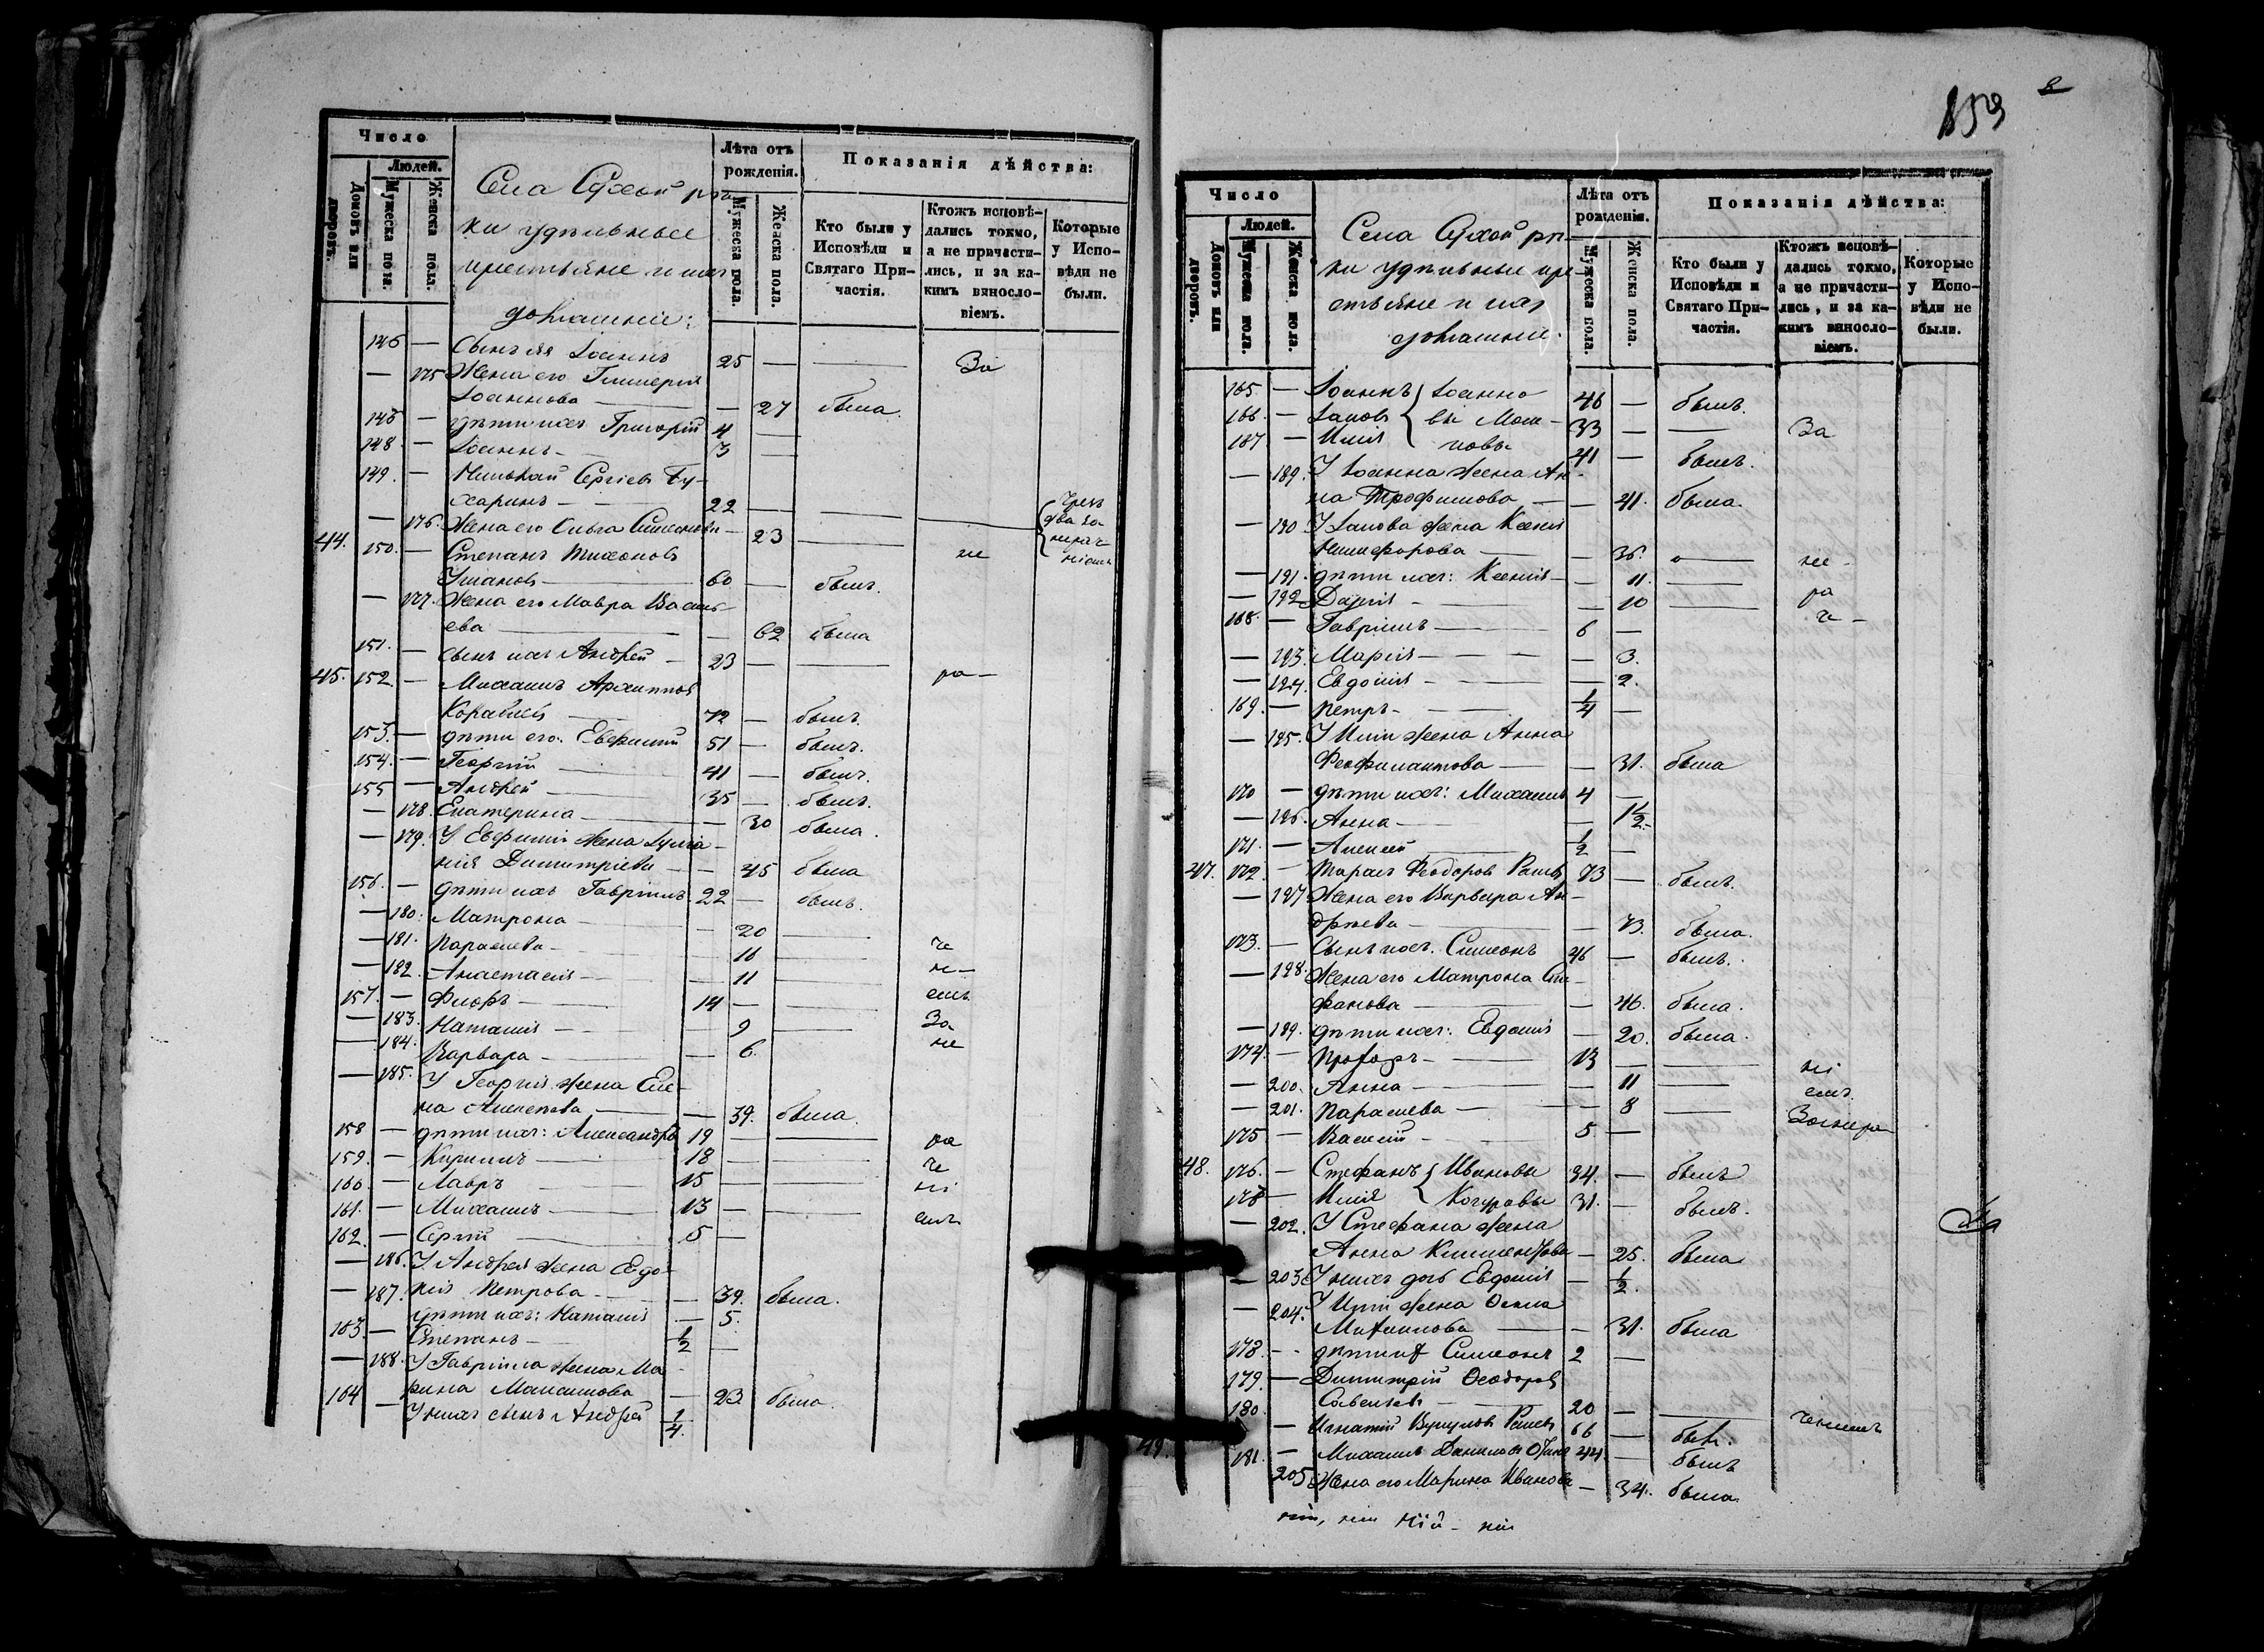 Число
Людей.
Домовъ или дворовъ.
Мужеска пола.
Женска пола.
Села Сухой рѣч-
ки удѣльные
крестьяне и их
домашніе:
Лѣта отъ
рожденія.
Мужеска пола.
Женска пола.
Показанія дѣйства:
Кто были у
Исповѣди и
Святаго При-
частія.
Ктожъ исповѣ-
дались токмо,
а не причасти-
лись, и за ка-
кимъ виносло-
віемъ.
Которые
у Испо-
вѣди не
были.
146 — Сынъ ея Іоаннъ 25 — — За
— 175 Жена его Гликерія
Іоаннова — — 27 была.
148 — дѣти ихъ Григорій 4 —
148. — Іоаннъ — 3 —
149. — Сергіевъ Бу-
харинъ — 22 — —
— 176. Жена его Ольга Симеонова — 23 —
44. 150. — Степанъ Тихоновъ не
Ушановъ — 60 — былъ.
— 177. Жена его Мавра Василь-
ева — — 62 была
151. — сынъ ихъ Андрей — 23 — — ра —
45. 152. — Михаилъ Архиппов
72 — былъ.
153. — дѣти его: Евфимій 51 — былъ.
154. — Георгій — 41 — былъ.
155 — Андрей — 35 — былъ.
— 178. Екатерина — — 30 была.
— 179. У Евфимія жена Іуліа-
нія Димитріева — — 45 была
156. — дѣти ихъ Гавріилъ 22 — былъ.
— 180. Матрона — — 20 —
— 181. Параскева — — 16 — че
— 182. Анастасія — — 11 — ні —
157. — Флоръ — 14 — — емъ
— 183. Наталія — — 9 — За
— 184. Варвара — — 6. не
— 185. У Георгія жена Еле-
на Алексѣева — — 39. была.
158 — дѣти ихъ: Александръ 19 — — ра
159. — Кириллъ — 18 — — че
160 — Лавръ — 15 — — ні
161. — Михаилъ — 13 — — емъ
162. — Сергій — 5 —
— 186. У Андрея жена Евдо-
кія Петрова — — 39. была.
— 187. дѣти ихъ: Наталія — 5.
163. — Степанъ — 1/2 —
— 188. У Гавріила жена Ма-
рина Максимова — 23 была.
164 — У нихъ сынъ Андрей 1/4.
159
Число
Людей.
Домовъ или дворовъ.
Мужеска пола.
Женска пола.
Села Сухой рѣч-
ки удѣльные кре-
стьяне и их
домашніе.
Лѣта отъ
рожденія.
Мужеска пола.
Женска пола.
Показанія дѣйства:
Кто были у
Исповѣди и
Святаго При-
частія.
Ктожъ исповѣ-
дались токмо,
а не причасти-
лись, и за ка-
кимъ виносло-
віемъ.
Которые
у Испо-
вѣди не
были.
165. — Іоаннъ Іоанно- 46 — былъ.
166. — Іаковъ вы 33 — — За
167 — Илія 41 — былъ.
— 189. У Іоанна жена Ан-
на Трофимова — — 41. была.
— 190 У Іакова жена Ксенія
Никифорова — — 36. — не —
— 191. дѣти ихъ: Ксенія — — 11. —
— 192 Дарія — — 10 — ра
168. — Гавріилъ — 6 — че —
— 193. Марія — — 3.
— 194. Евдокія — — 2.
169. — Петръ — 1/4 —
— 195. У Иліи жена Анна
Феофилактова — — 31. была
170 — дѣти ихъ: Михаилъ 4 —
— 196. Анна — — 1 1/2.
171. — Алексей — 1/2 —
47. 172. — Тарасъ Феодоров 73 — былъ.
— 197 Жена его Варвара Ан-
дреева — — 73. была.
173. — Сынъ ихъ. Симеонъ 46 — былъ.
— 198. Жена его Матрона Сте-
фанова — — 46. была.
— 199. дѣти ихъ: Евдокія — 20. была.
174. — Прохоръ — 13 — — ні
— 200. Анна — — 11 — емъ.
— 201. Параскева — — 8 —
175 — Василій — 5 —
48. 176. — Стефанъ Ивановы 34. — былъ
178 — Илія 31. — былъ.
— 202. У Стефана жена
Анна Климентова — 25. была
— 203. У нихъ дочь Евдокія — 1/2.
— 204. У Иліи жена
— — 31. была
178. — дѣти Симеонъ 2 —
179. — Димитрій Феодоров
Савельев — 20 — —
180. — Игнатій 66 — былъ.
49. 181. — Михаилъ 44 — былъ
205 Жена его Марина Иванова — 34. была.